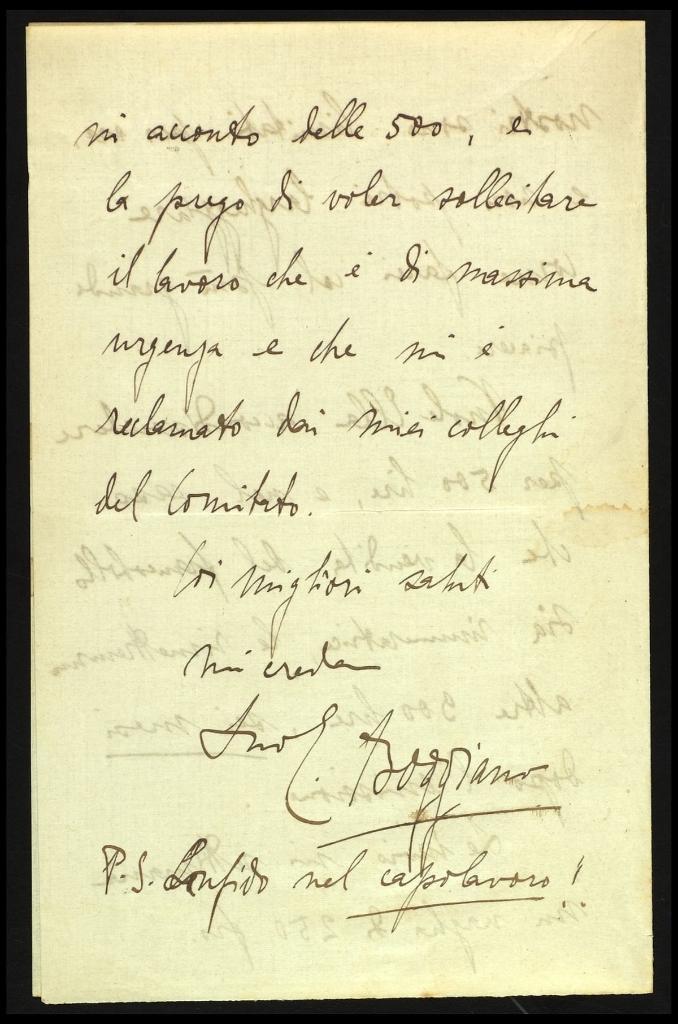 in acconto delle 500, e
la prego di voler sollecitare
il lavoro che è di massima
urgenza e che mi è
reclamato dai miei colleghi
del Comitato.
Coi migliori saluti
mi creda
Suo C. Boggiano
P.S. Confido nel capolavoro!